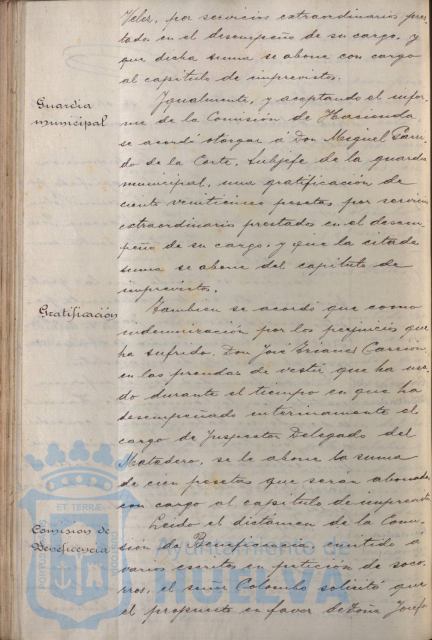 Velez, por servicios extraordinarios pres-
tados en el desempeño de su cargo, y
que dicha suma se abone con cargo
al capítulo de imprevistos.
Guardia
municipal
Igualmente, y aceptando el infor-
me de la Comisión de Hacienda
se acordó otorgar á Don Miguel Garri-
do de la Corte, Subjefe de la guardia
municipal, una gratificación de
ciento veinticinco pesetas por servicios
extraordinarios prestados en el desem-
peño de su cargo, y que la citada
suma se abone del capítulo de
imprevistos.
Gratificación
Tambien se acordó que como
indemnización por los perjuicios que
ha sufrido Don José Carrión,
en las prendas de vestir que ha usa-
do durante el tiempo en que ha
desempeñado interinamente el
cargo de Inspector Delegado del
Matadero, se le abone la suma
de cien pesetas que serán abonadas
con cargo al capítulo de imprevistos
Comisión de
Beneficencia
Leido el dictámen de la Comi-
sión de Beneficencia emitido á
varios escritos en petición de soco-
rros, el señor Colombo solicitó que
el propuesto en favor de Doña Josefa
ET TERRAE
Ayuntamiento de
HUELVA